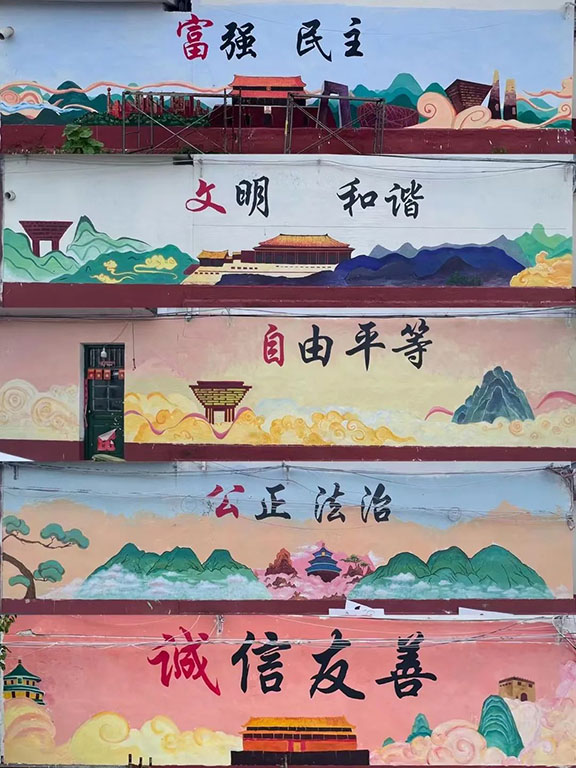 富强 民主
文明 和谐
自由平等
公正法治
誠信友善